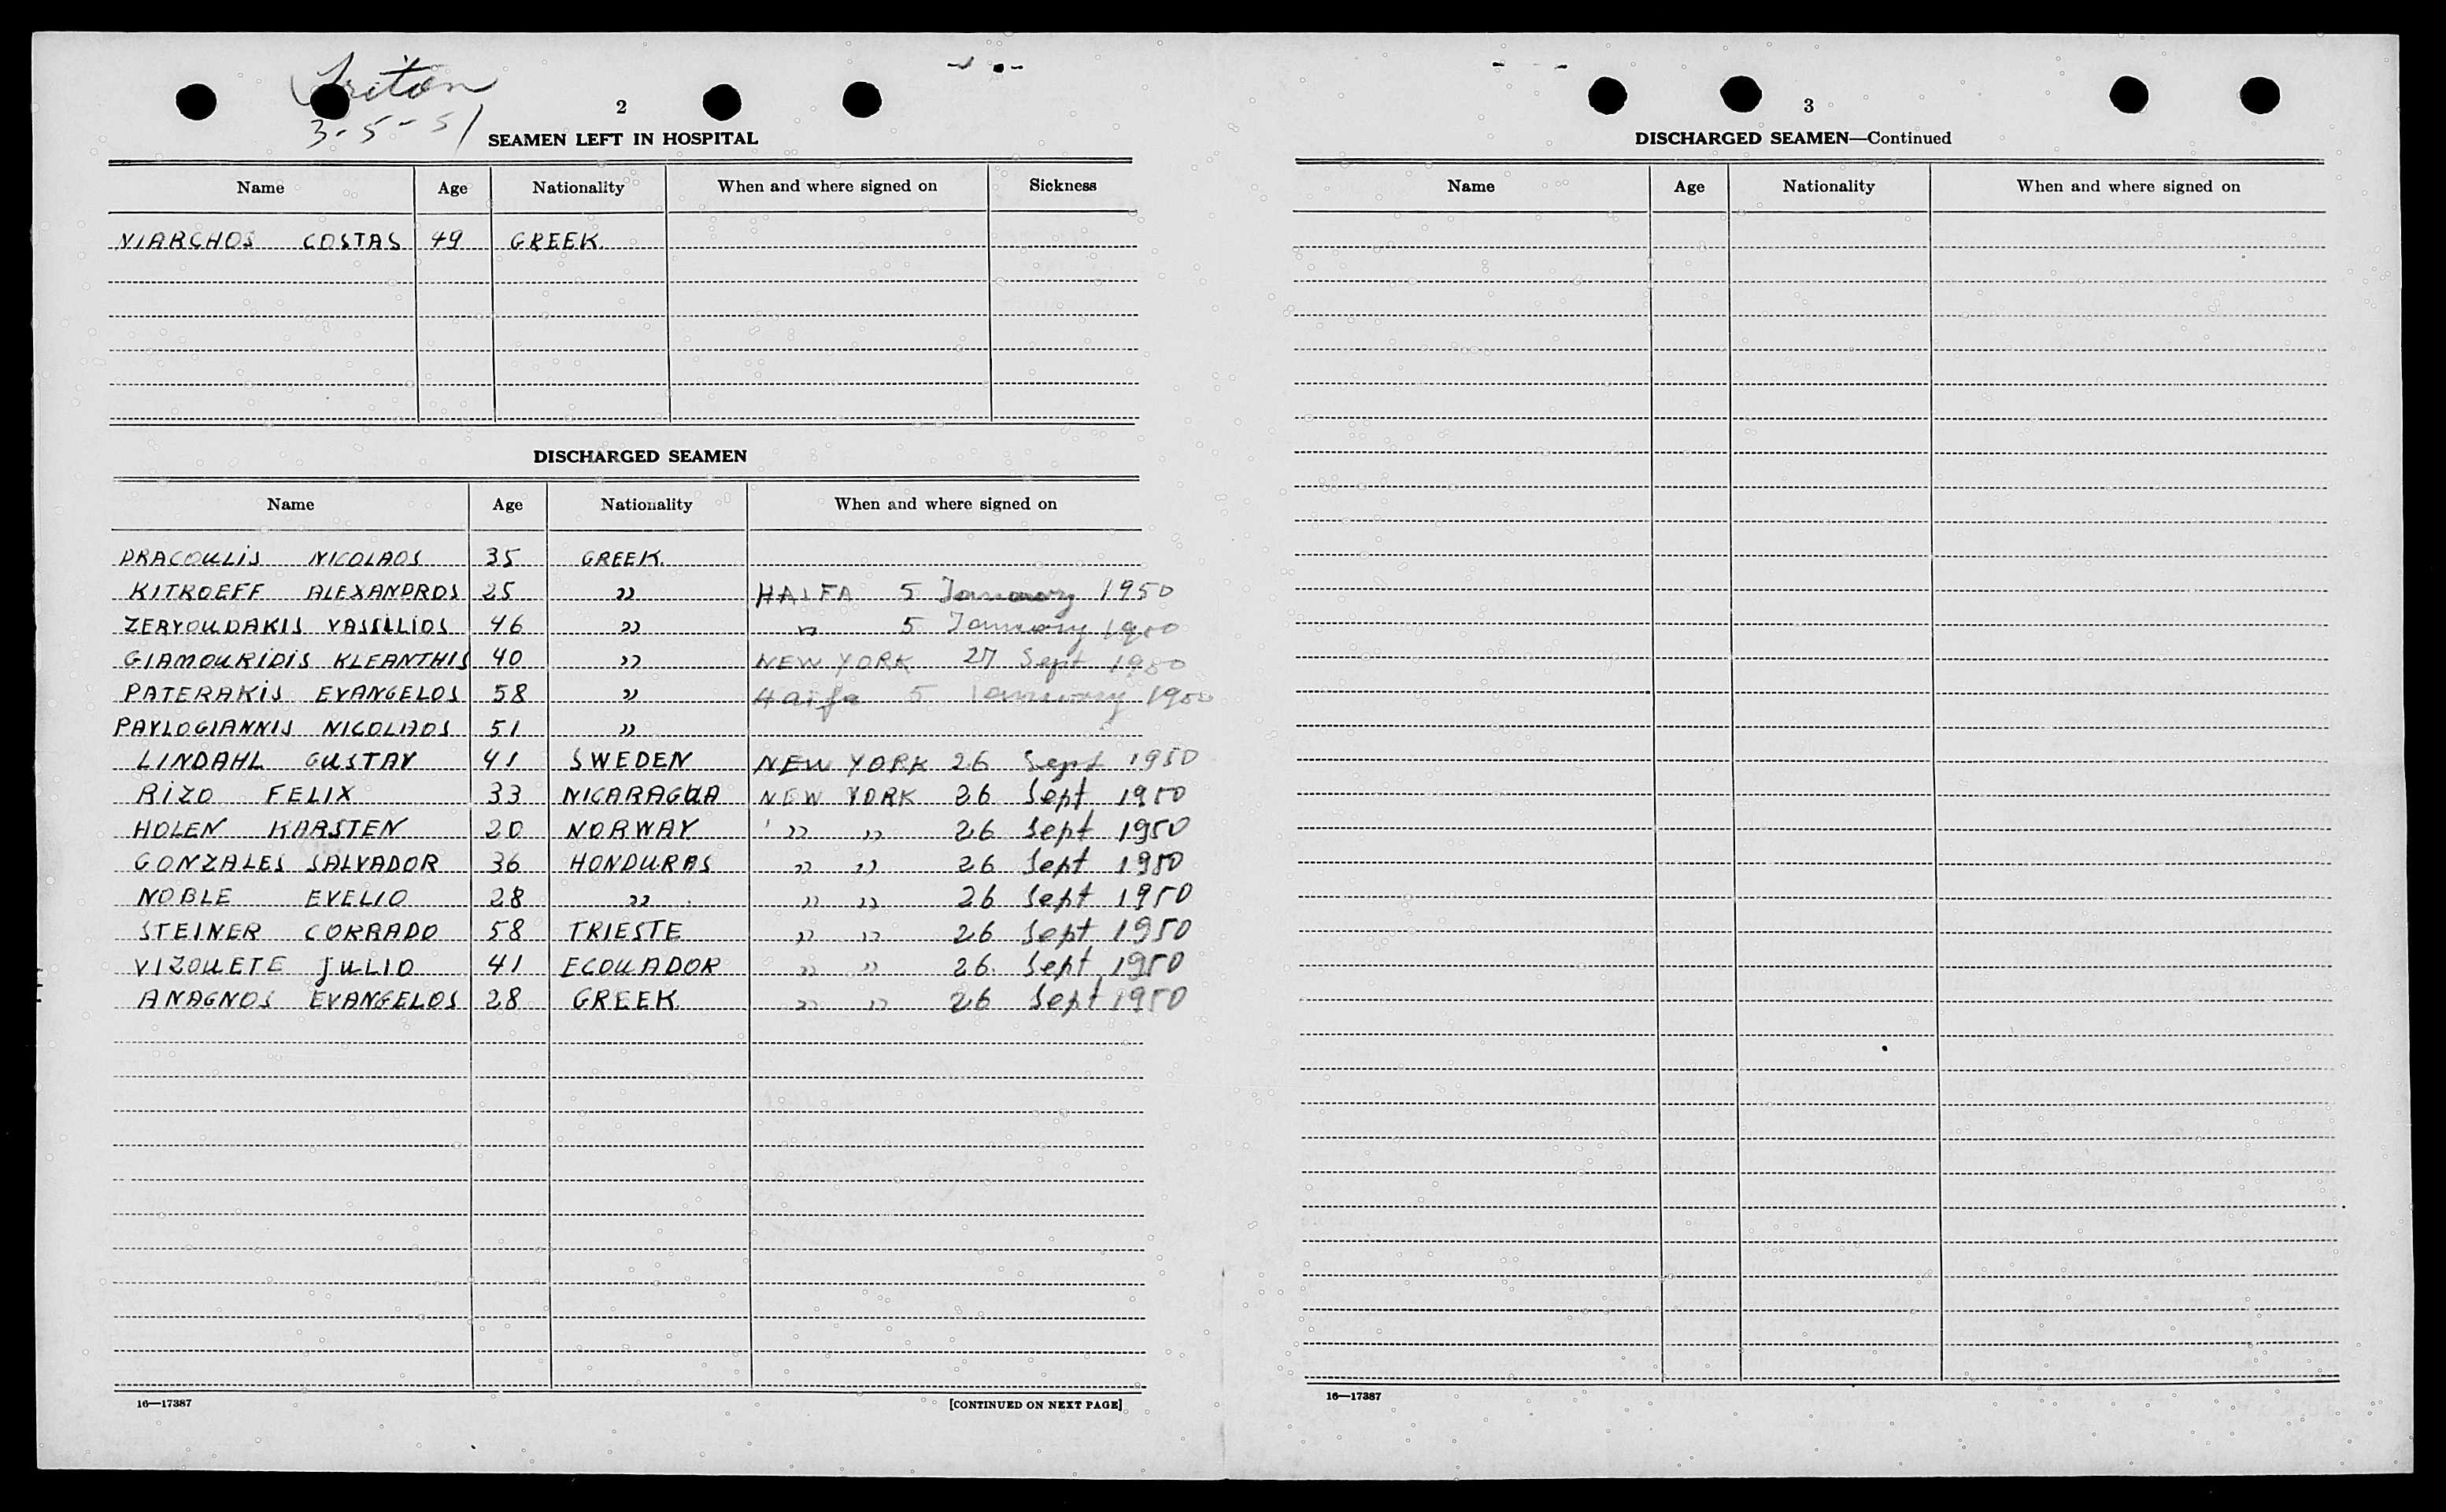 Triton
3-5-51
2
SEAMEN LEFT IN HOSPITAL
Name Age Nationality When and where signed on Sickness
NIARCHOS COSTAS 49 GREEK
DISCHARGED SEAMEN
Name Age Nationality When and where signed on
DRACOULIS NICOLAOS 35 GREEK
KITROEFF ALEXANDROS 25 " HAIFA 5 January 1950
ZERVOUDAKIS VASSILIOS 46 " " 5 January 1950
GIAMOURIDIS KLEANTHIS 40 " NEW YORK 27 Sept 1950
PATERAKIS EVANGELOS 58 " Haifa 5 January 1950
PAVLOGIANNIS NICOLAOS 51 "
LINDAHL GUSTAV 41 SWEDEN NEW YORK 26 Sept 1950
RIZO FELIX 33 NICARAGUA NEW YORK 26 Sept 1950
HOLEN KARSTEN 20 NORWAY " " 26 Sept 1950
GONZALES SALVADOR 36 HONDURAS " " 26 Sept 1950
NOBLE EVELIO 28 " " " 26 Sept 1950
STEINER CORRADO 58 TRIESTE " " 26 Sept 1950
VIZOUETE JULIO 41 ECOUADOR " " 26 Sept 1950
ANAGNOS EVANGELOS 28 GREEK " " 26 Sept 1950
16—17387 [CONTINUED ON NEXT PAGE]
3
DISCHARGED SEAMEN—Continued
Name Age Nationality When and where signed on
16—17387